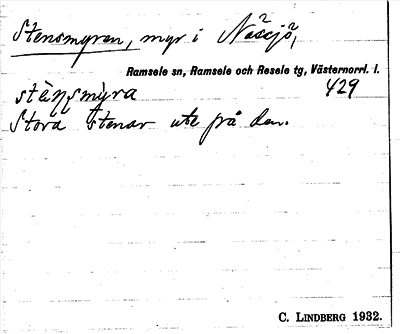 Stensmyran, myr i Nässjö,
Ramsele sn, Ramsele och Resele tg, Västernorrl. l.
429
stènsmỳra
Stora stenar ute på den.
C. LINDBERG 1932.